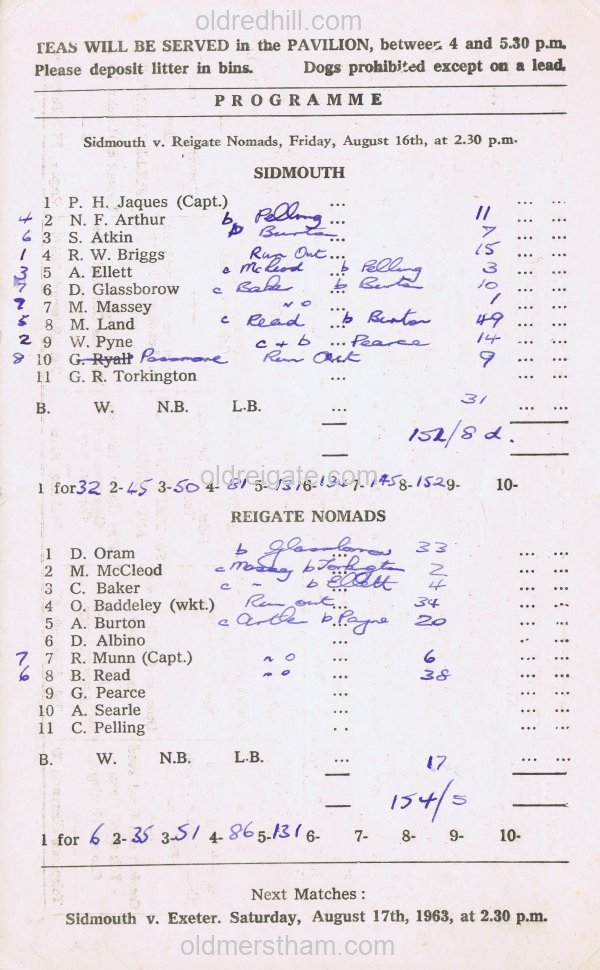 oldredhill.com
TEAS WILL BE SERVED in the PAVILION, between 4 and 5.30 p.m.
Please deposit litter in bins. Dogs prohibited except on a lead.
PROGRAMME
Sidmouth v. Reigate Nomads, Friday, August 16th, at 2.30 p.m.
SIDMOUTH
1 P. H. Jaques (Capt.) ... ... ...
4 2 N. F. Arthur b Pelling ... 11 ... ...
6 3 S. Atkin b Burton 7 ... ...
1 4 R. W. Briggs Run Out ... 15 ... ...
3 5 A. Ellett c McLeod ... b Pelling 3 ... ...
7 6 D. Glassborow c Baker b Burton 10 ... ...
7 M. Massey N O ... 1 ... ...
5 8 M. Land c Read ... b Burton 49 ... ...
2 9 W. Pyne c + b ... Pearce 14 ... ...
8 10 G. Ryall Passmore Run Out 9 ... ...
11 G. R. Torkington ... ... ...
B. W. N.B. L.B. ... 31 ... ...
152/8 d.
oldreigate.com
1 for 32 2- 45 3- 50 4- 81 5- 131 6- 7- 145 8- 152 9- 10-
REIGATE NOMADS
1 D. Oram b Glassborow 33 ... ...
2 M. McCleod c Massey b Torkington 2 ... ...
3 C. Baker c - b Ellett 4 ... ...
4 O. Baddeley (wkt.) Run out ... 34 ... ...
5 A. Burton c Arthur b Payne 20 ... ...
6 D. Albino ... ... ...
7 7 R. Munn (Capt.) N O ... 6 ... ...
6 8 B. Read N O ... 38 ... ...
9 G. Pearce ... ... ...
10 A. Searle ... ... ...
11 C. Pelling .. ... ...
B. W. N.B. L.B. ... 17 ... ...
154/5
1 for 6 2- 35 3- 51 4- 86 5- 131 6- 7- 8- 9- 10-
Next Matches :
Sidmouth v. Exeter. Saturday, August 17th, 1963, at 2.30 p.m.
oldmerstham.com